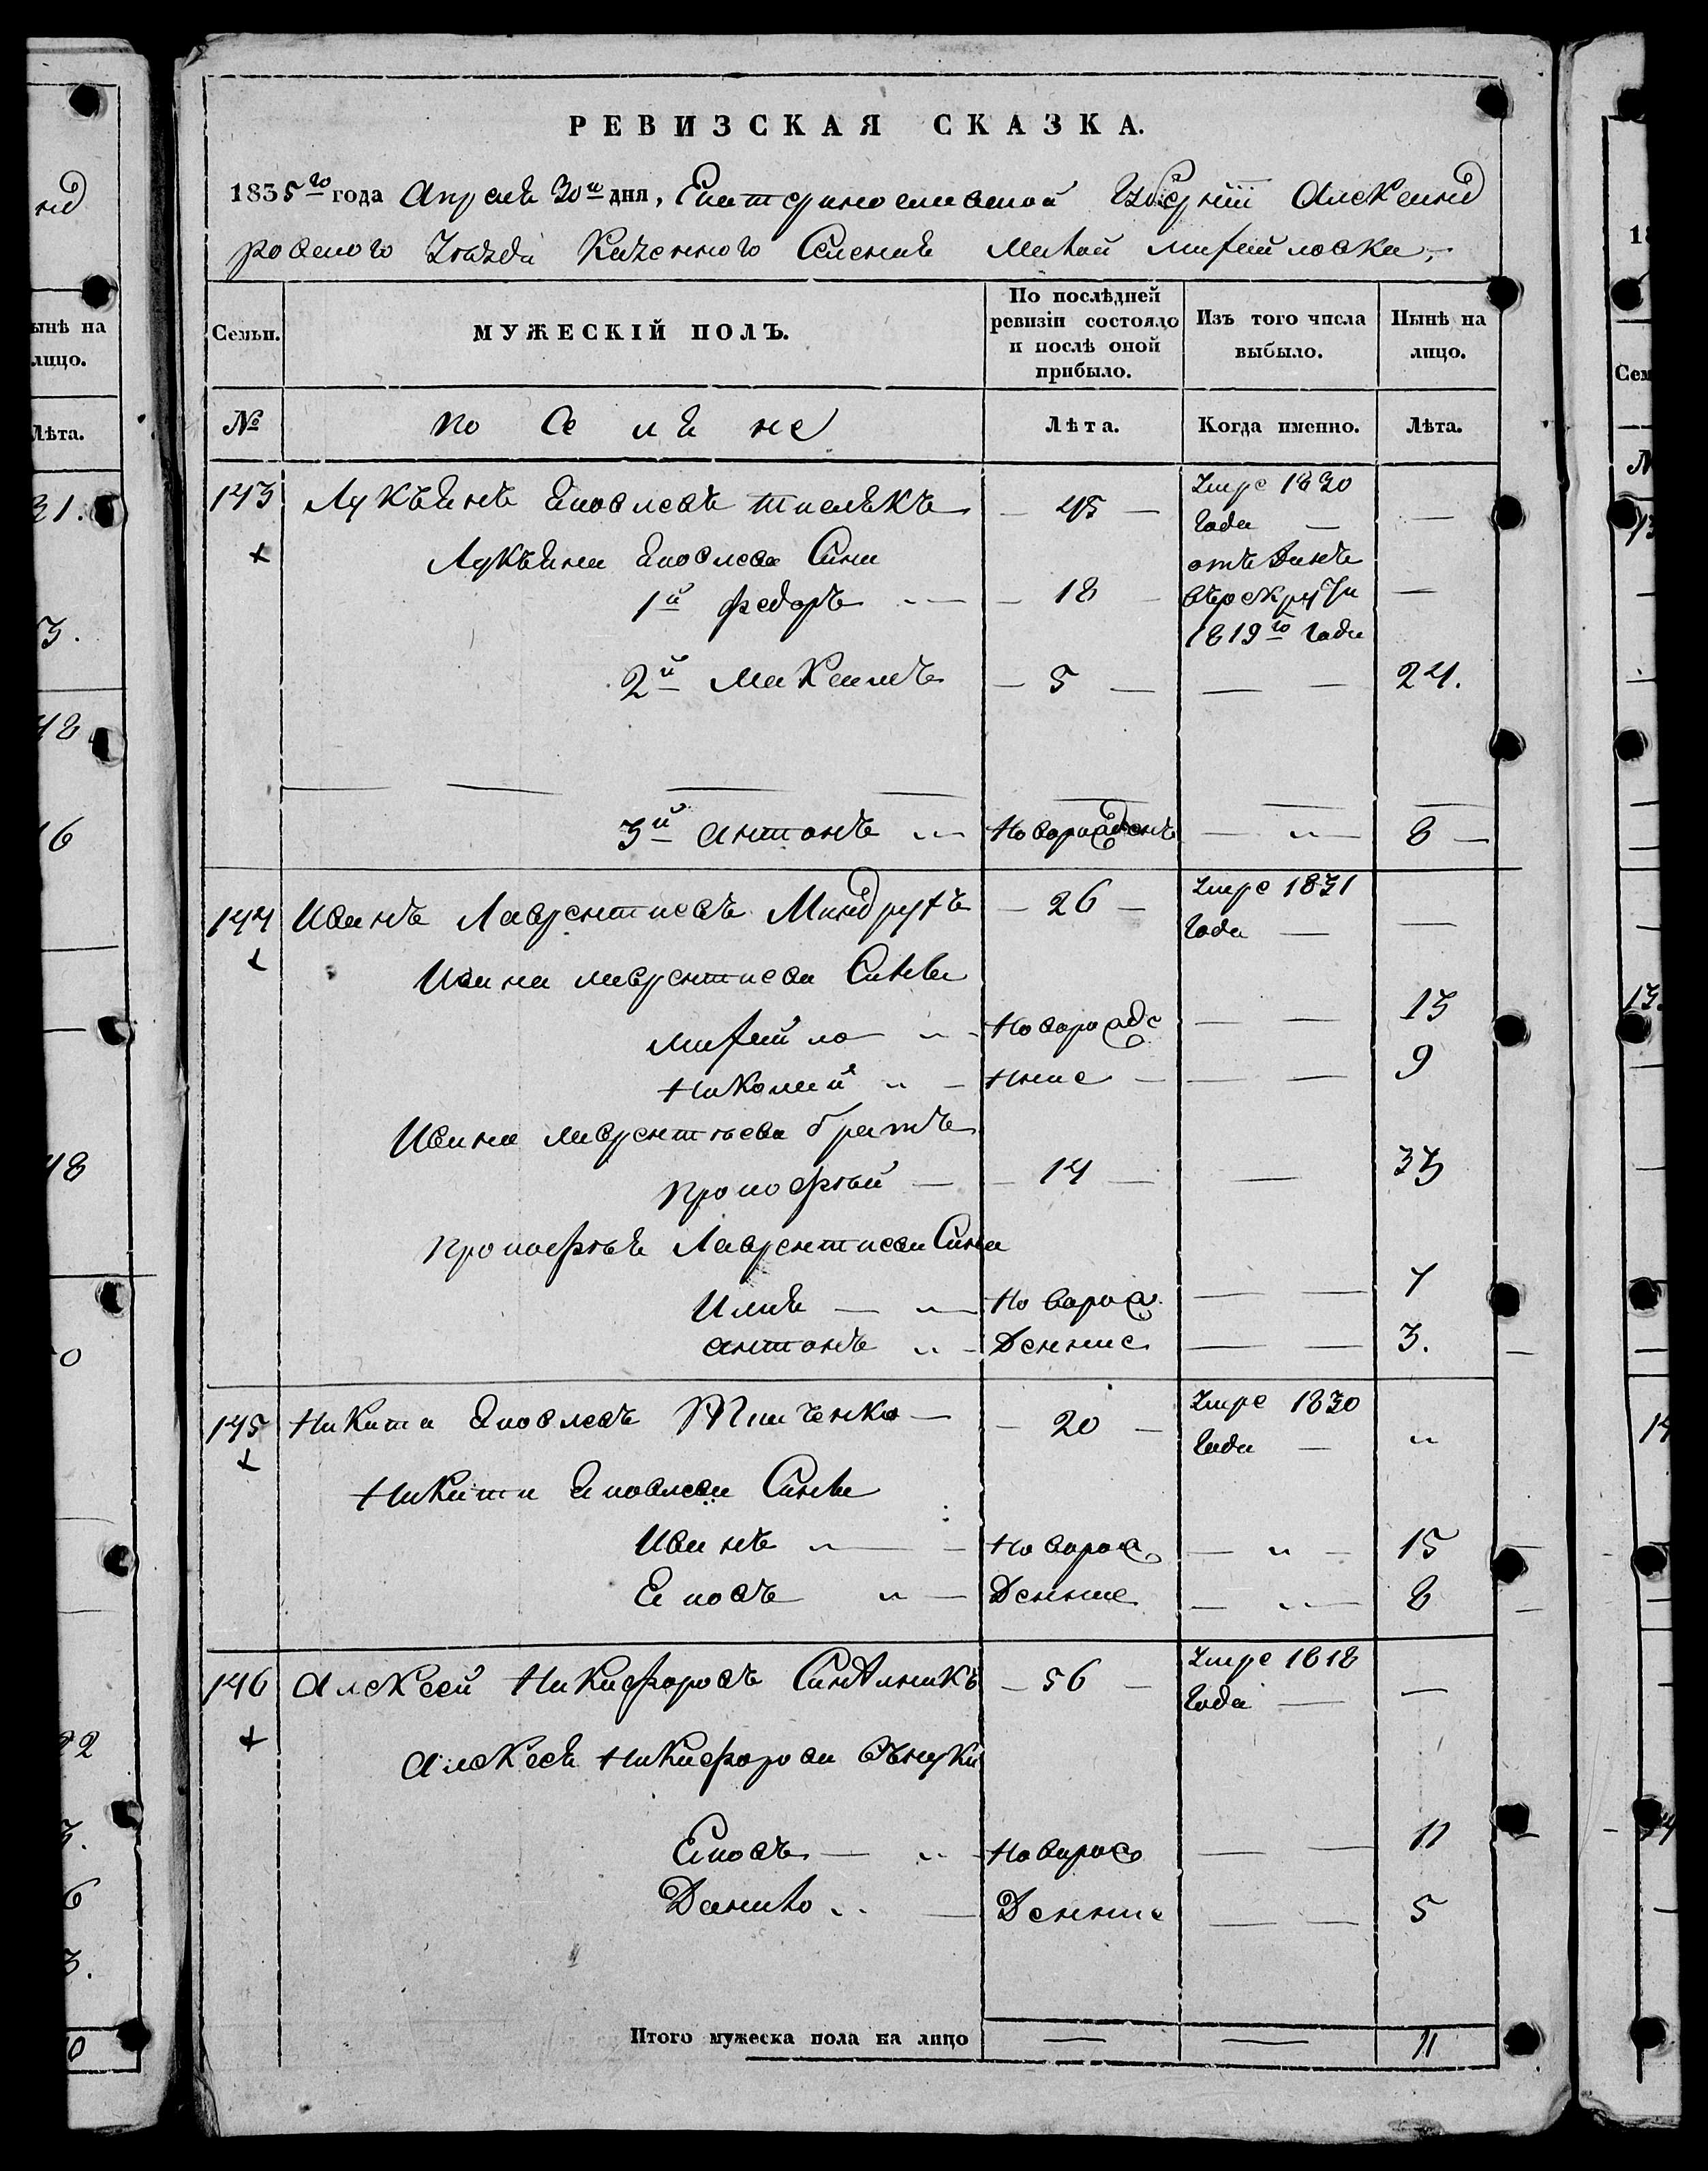 РЕВИЗСКАЯ СКАЗКА.
1835го года Апреля 30го дня, Екатеринославской Губернии Александ
ровского Уезда Казенного Селения Малой Михайловки,
Семьи. МУЖЕСКІЙ ПОЛЪ. По послѣдней ревизіи состояло и послѣ оной прибыло. Изъ того числа выбыло. Нынѣ на лицо.
№ поселяне Лѣта. Когда именно. Лѣта.
143 Лукъянъ Яковлевъ — 45 — Умре 1830 года — —
Лукъяна Яковлева Сини
1й Федоръ — 18 — отъданъ въ рекруты 1819го года —
2й Максимъ — 5 — — — 24.
3й Антонъ Новорожденъ — 8 —
144 Иванъ Лаврентиевъ — 26 — Умре 1831 года — —
Ивана Лаврентиева Сины
Михайло Новорожде — — 13
Николай нние — — — 9
Ивана Лаврентьева братъ
Прокофий — — 14 — — 33
Прокофья Лаврентиева Сини
Илия — Новорож — — 7
Антонъ денние — — 3.
145 Никита Яковлевъ Ткаченко — — 20 — Умре 1830 года —
Никити Яковлева Сины
Иванъ — Новорож — 15
Яковъ — денние — 8
146 Алексей Никифоровъ — 56 — Умре 1818 года — —
Алексея Никифорова Внуки
Яковъ — Новорож — — 11
Данило — денние — — 5
Итого мужеска пола на лицо — — 11
нынѣ на
лицо.
Лѣта.
31.
3.
48
16
48
0
22
3.
6
3.
10
18
Сем
№
13